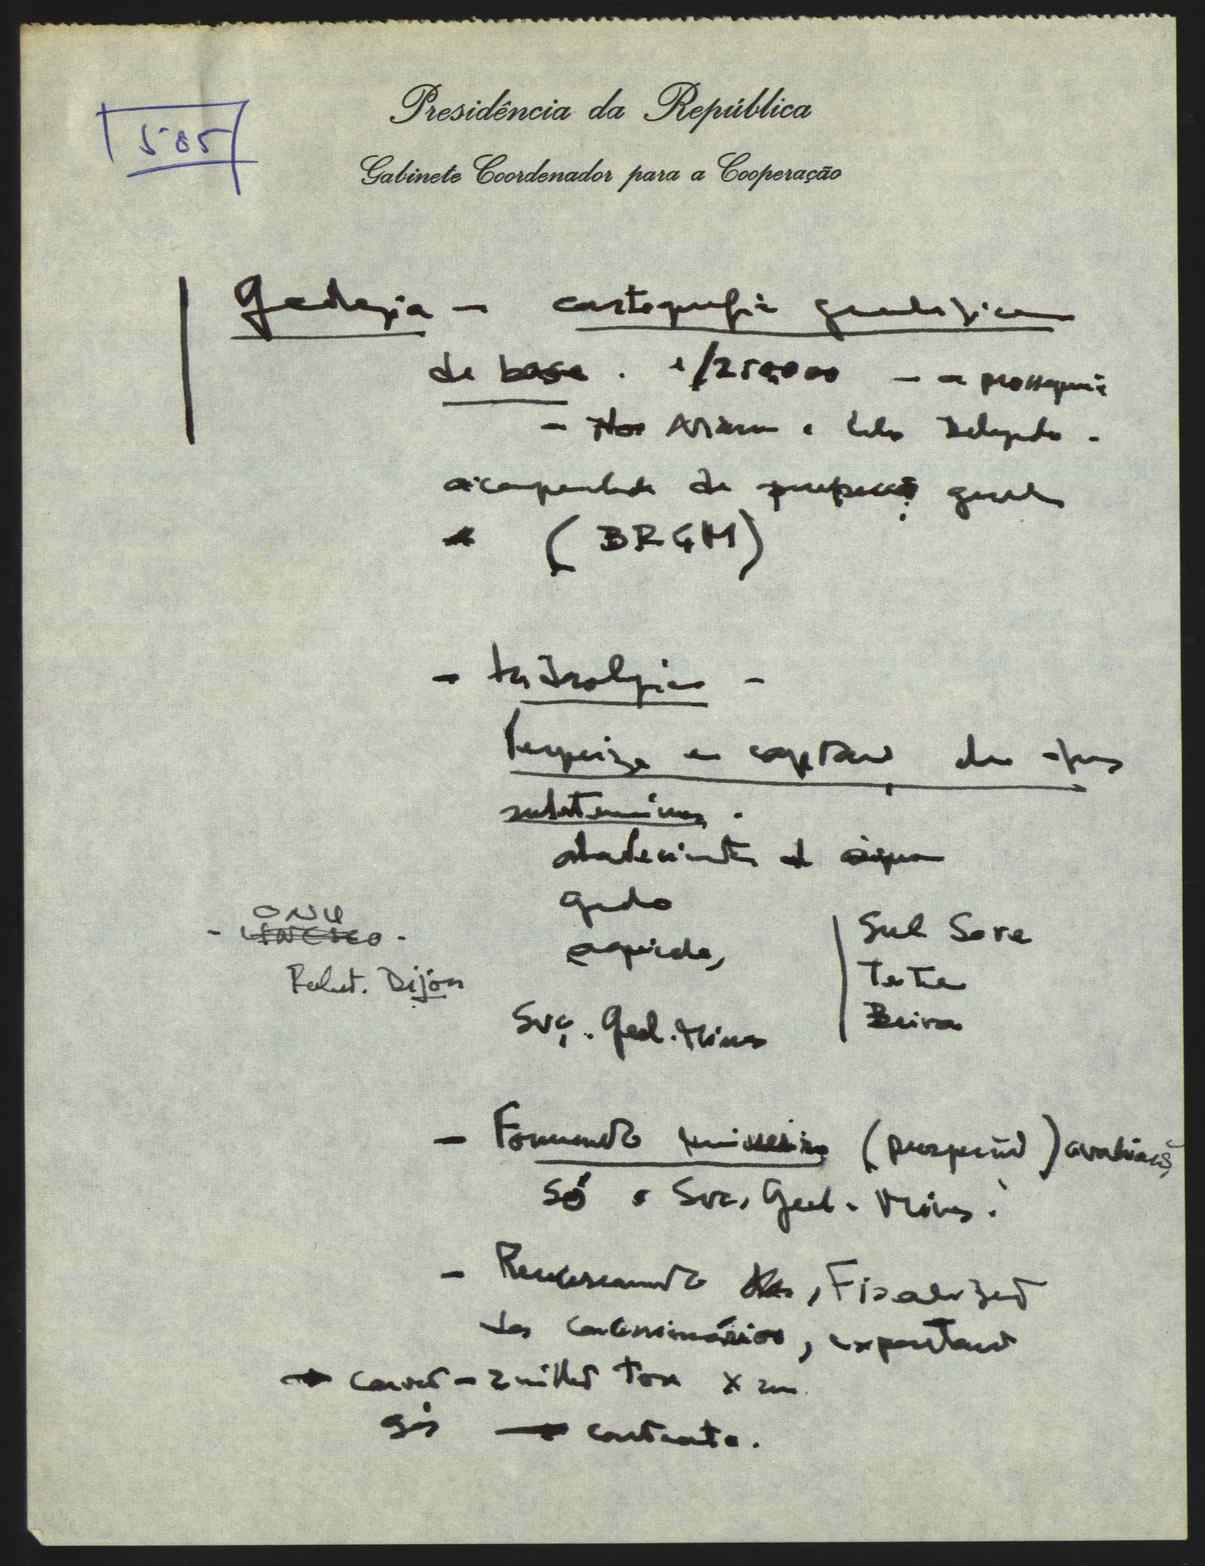 505
Presidência da República
Gabinete Coordenador para a Cooperação
Geologia – cartografia geológica
de base . 1/250,000 – a prosseguir
– e Delgado .
acompanhada de prospecção geral
(BRGM)
– hidrologia –
Pesquiza e captação de águas
subterrâneas .
abastecimento de água
gado
agrícola,
Sul Save
Tete
Beira
ONU
– UNESCO .
Dijon
Svç. Geol. Minas
– Fomento mineiro (prospecção) avaliação
Só o Svç, Geol. Minas .
– , Fiscalização
das concessionários, exportação
→ carvão – 2 milhões Ton x
gás → contrato .